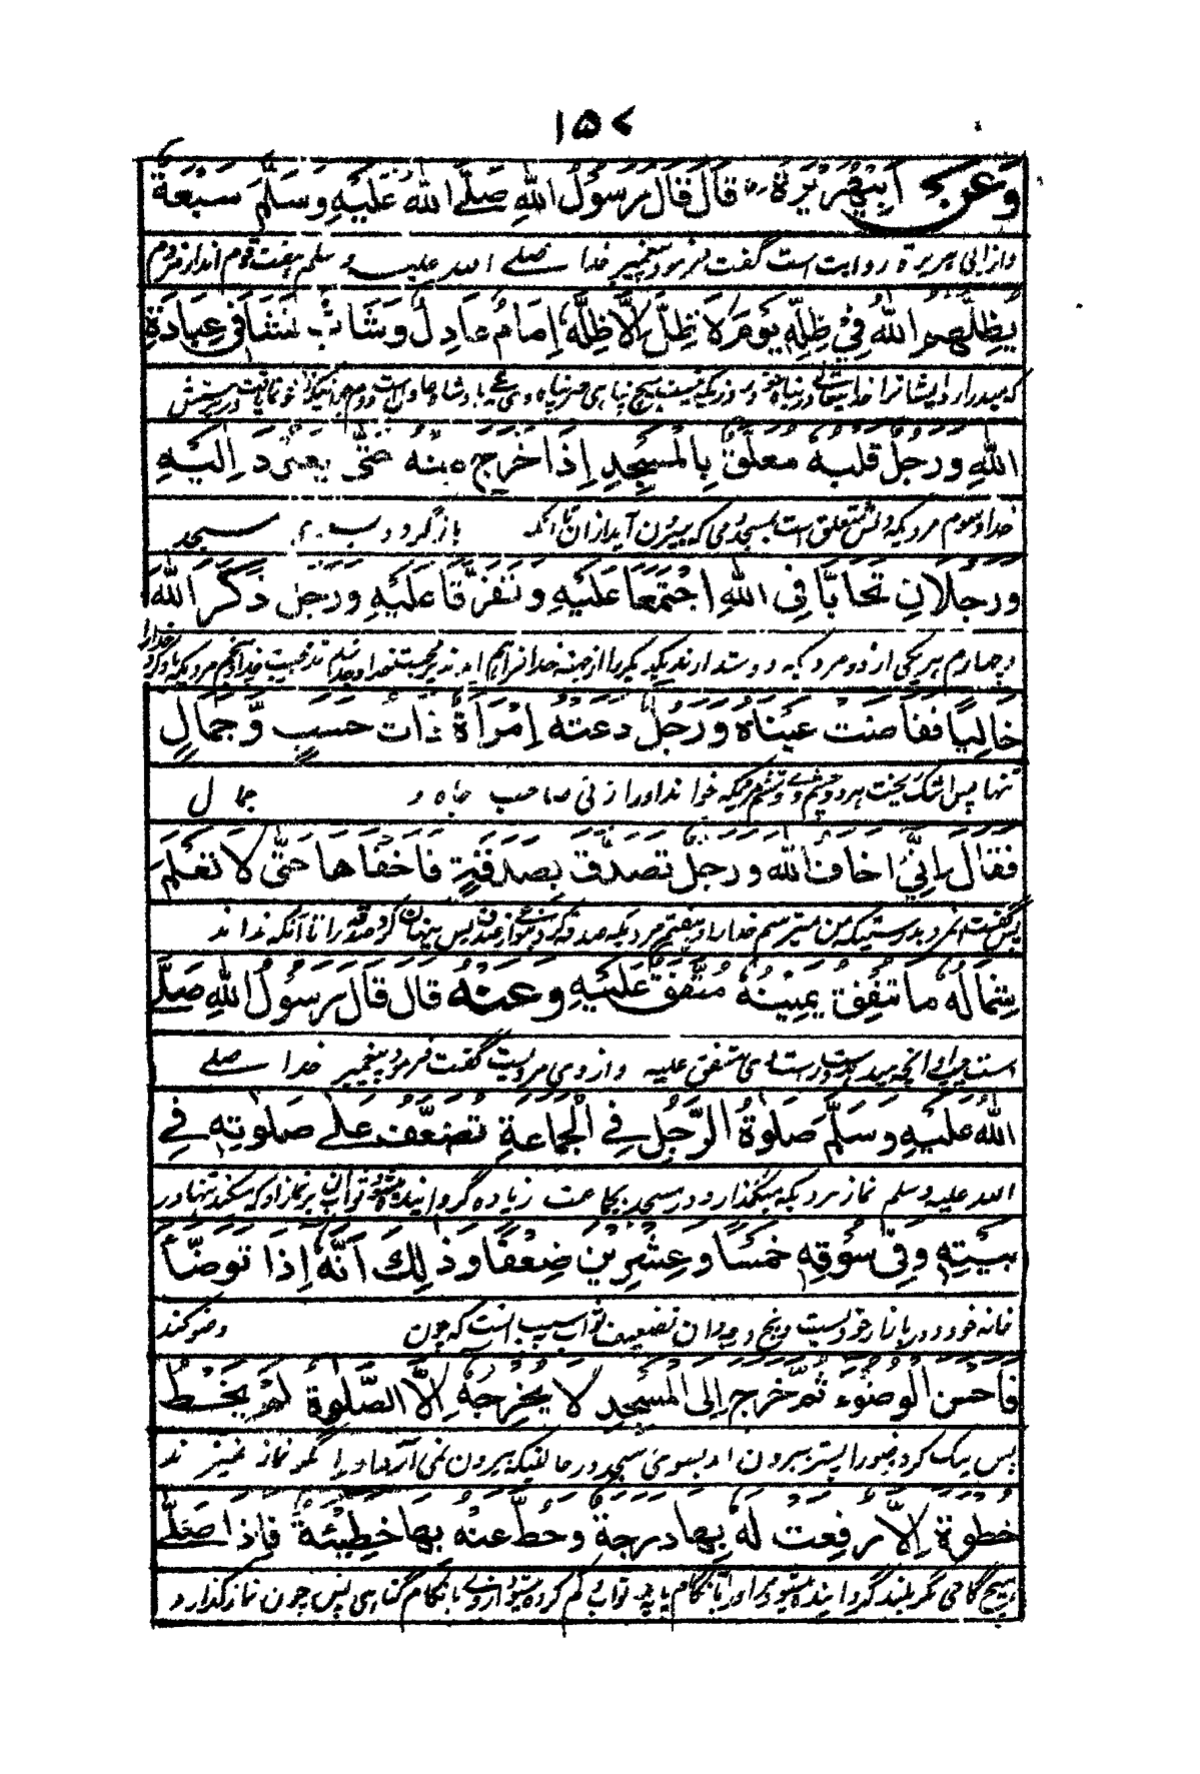 ۱۵۷
وَعَنْ اَبِيْهُرَيْرَةَ رض قَالَ قَالَ رَسُوْلُ اللّٰهِ صَلَّے اللّٰهُ عَلَيْهِ وَسَلَّمَ سَبْعَةٌ
و از ابی هریرة روایت است گفت فرمود پیغمبر خدا صلے اللہ علیہ و سلم هفت قوم اند از مردم
يُظِلُّهُمُ اللّٰهُ فِيْ ظِلِّهٖ يَوْمَ لَا ظِلَّ اِلَّا ظِلُّهٗ اِمَامٌ عَادِلٌ وَشَابٌّ نَشَأَ فِي عِبَادَةِ
که میدارد ایشانرا خدایتعالی در پناه خود روزیکه نیست هیچ پناهی جز پناه وی یکے بادشاه عادل است دوم
اللّٰهِ وَرَجُلٌ قَلْبُهٗ مُعَلَّقٌ بِالْمَسْجِدِ اِذَا خَرَجَ مِنْهُ حَتّٰى يَعُوْدَ اِلَيْهِ
خدا و سوم مردیکه دلش متعلق است بمسجد می که بیرون آید ازان تا آنکه باز گردد ب‍ مسجد
وَرَجُلَانِ تَحَابَّا فِي اللّٰهِ اجْتَمَعَا عَلَيْهِ وَتَفَرَّقَا عَلَيْهِ وَرَجُلٌ ذَكَرَ اللّٰهَ
و چهارم هر یکی از دو مرد که دوست دارند یکدیگر را از جهت خدا فراهم آیند بر محبت خدا و جدا
خَالِيًا فَفَاضَتْ عَيْنَاهُ وَرَجُلٌ دَعَتْهُ اِمْرَاَةٌ ذَاتُ حَسَبٍ وَّجَمَالٍ
تنها پس اشک ریخت هر دو چشم وے و ششم مردیکه خواند او را زنی صاحب جاه و جمال
فَقَالَ اِنِّيْ اَخَافُ اللّٰهَ وَرَجُلٌ تَصَدَّقَ بِصَدَقَةٍ فَاَخْفَاهَا حَتّٰى لَا تَعْلَمَ
پس گفت آنمرد بدرستیکه من میترسم خدا را و هفتم مردیکه صدقه کرد پس پنهان کرد صدقه را تا آنکه نداند
شِمَالُهٗ مَا تُنْفِقُ يَمِيْنُهٗ مُتَّفَقٌ عَلَيْهِ وَعَنْهُ قَالَ قَالَ رَسُوْلُ اللّٰهِ صَلَّے
دست چپ او آنچه میدهد دست راست وی متفق علیه و از وی مرویست گفت فرمود پیغمبر خدا صلے
اللّٰهُ عَلَيْهِ وَسَلَّمَ صَلٰوةُ الرَّجُلِ فِي الْجَمَاعَةِ تُضَعَّفُ عَلٰے صَلٰوتِهٖ فِي
اللہ علیہ و سلم نماز مردیکه میگذارد در مسجد بجماعت زیاده گردانیده میشود ثواب آن بر نماز او که میکند تنها در
بَيْتِهٖ وَفِي سُوْقِهٖ خَمْسًا وَعِشْرِيْنَ ضِعْفًا وَذٰلِكَ اَنَّهٗ اِذَا تَوَضَّأَ
خانه خود و در بازار خود بیست و پنج و میدان تضعیف ثواب بسبب آنست که چون وضو کند
فَاَحْسَنَ الْوُضُوْءَ ثُمَّ خَرَجَ اِلَى الْمَسْجِدِ لَا يُخْرِجُهٗ اِلَّا الصَّلٰوةُ لَمْ يَخْطُ
پس نیک کرد وضو را پستر بیرون آمد بسوی مسجد در حالتیکه بیرون نمی آرد او را مگر نماز نمیز ند
خُطْوَةً اِلَّا رُفِعَتْ لَهٗ بِهَا دَرَجَةٌ وَحُطَّ عَنْهُ بِهَا خَطِيْئَةٌ فَاِذَا صَلّٰے
هیچ گامی مگر بلند گردانیده میشود مر او را بآن گام پایه ثواب و کم کرده میشود از وے بآن گام گناهی پس چون نماز گذارد